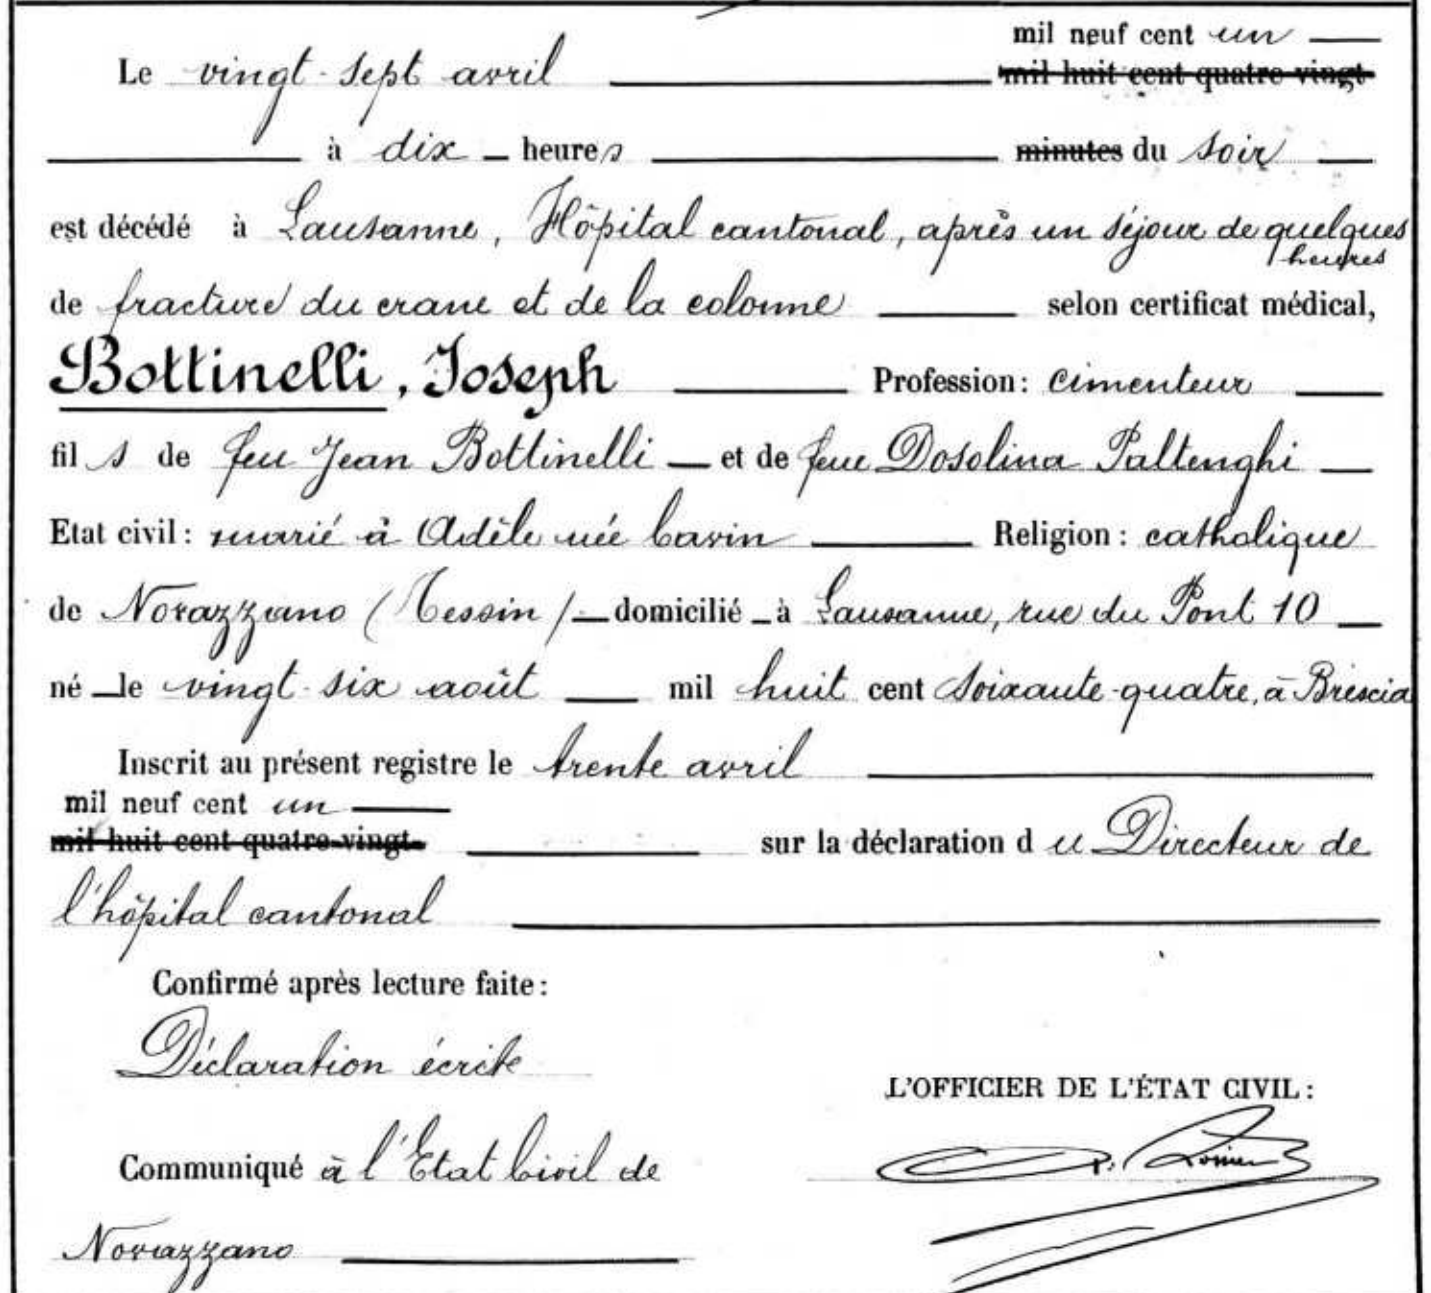 mil neuf cent un
Le vingt-sept avril mil huit cent quatre-vingt
à dix heures minutes du soir
est décédé à Lausanne, Hôpital cantonal, après un séjour de quelques
heures
de fracture du crane et de la colonne selon certificat médical,
Bottinelli, Joseph Profession: cimenteur
fils de feu Jean Bottinelli et de feue Dosolina Paltenghi
Etat civil: marié à Adèle née Cavin Religion: catholique
de Novazzano (Tessin) domicilié à Lausanne, rue du Pont 10
né le vingt-six août mil huit cent soixante-quatre, à Brescia
Inscrit au présent registre le trente avril
mil neuf cent un
mil huit cent quatre-vingt- sur la déclaration du Directeur de
l'hôpital cantonal
Confirmé après lecture faite:
Déclaration écrite
L'OFFICIER DE L'ÉTAT CIVIL:
Communiqué à l'Etat Civil de
Novazzano